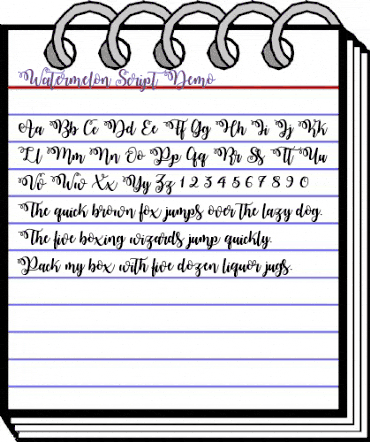 Watermelon Script Demo
Aa Bb Cc Dd Ee Ff Gg Hh Ii Jj Kk
Ll Mm Nn Oo Pp Qq Rr Ss Tt Uu
Vv Ww Xx Yy Zz 1 2 3 4 5 6 7 8 9 0
The quick brown fox jumps over the lazy dog.
The five boxing wizards jump quickly.
Pack my box with five dozen liquor jugs.